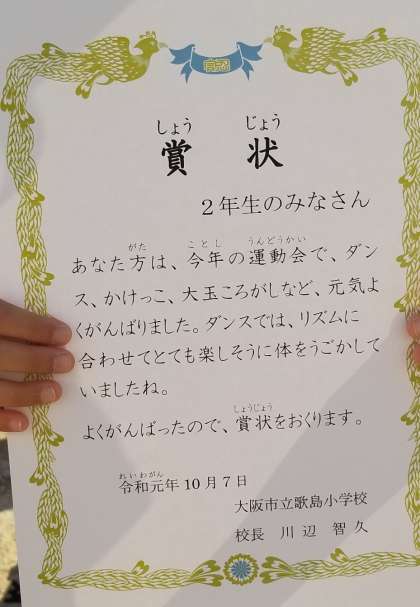 しょう じょう
賞 状
2年生のみなさん
がた ことし うんどうかい
あなた方は、今年の運動会で、ダン
ス、かけっこ、大玉ころがしなど、元気よ
くがんばりました。ダンスでは、リズムに
合わせてとても楽しそうに体をうごかして
いましたね。
しょうじょう
よくがんばったので、賞状をおくります。
れいわがん
令和元年10月7日
大阪市立歌島小学校
校長 川辺 智久